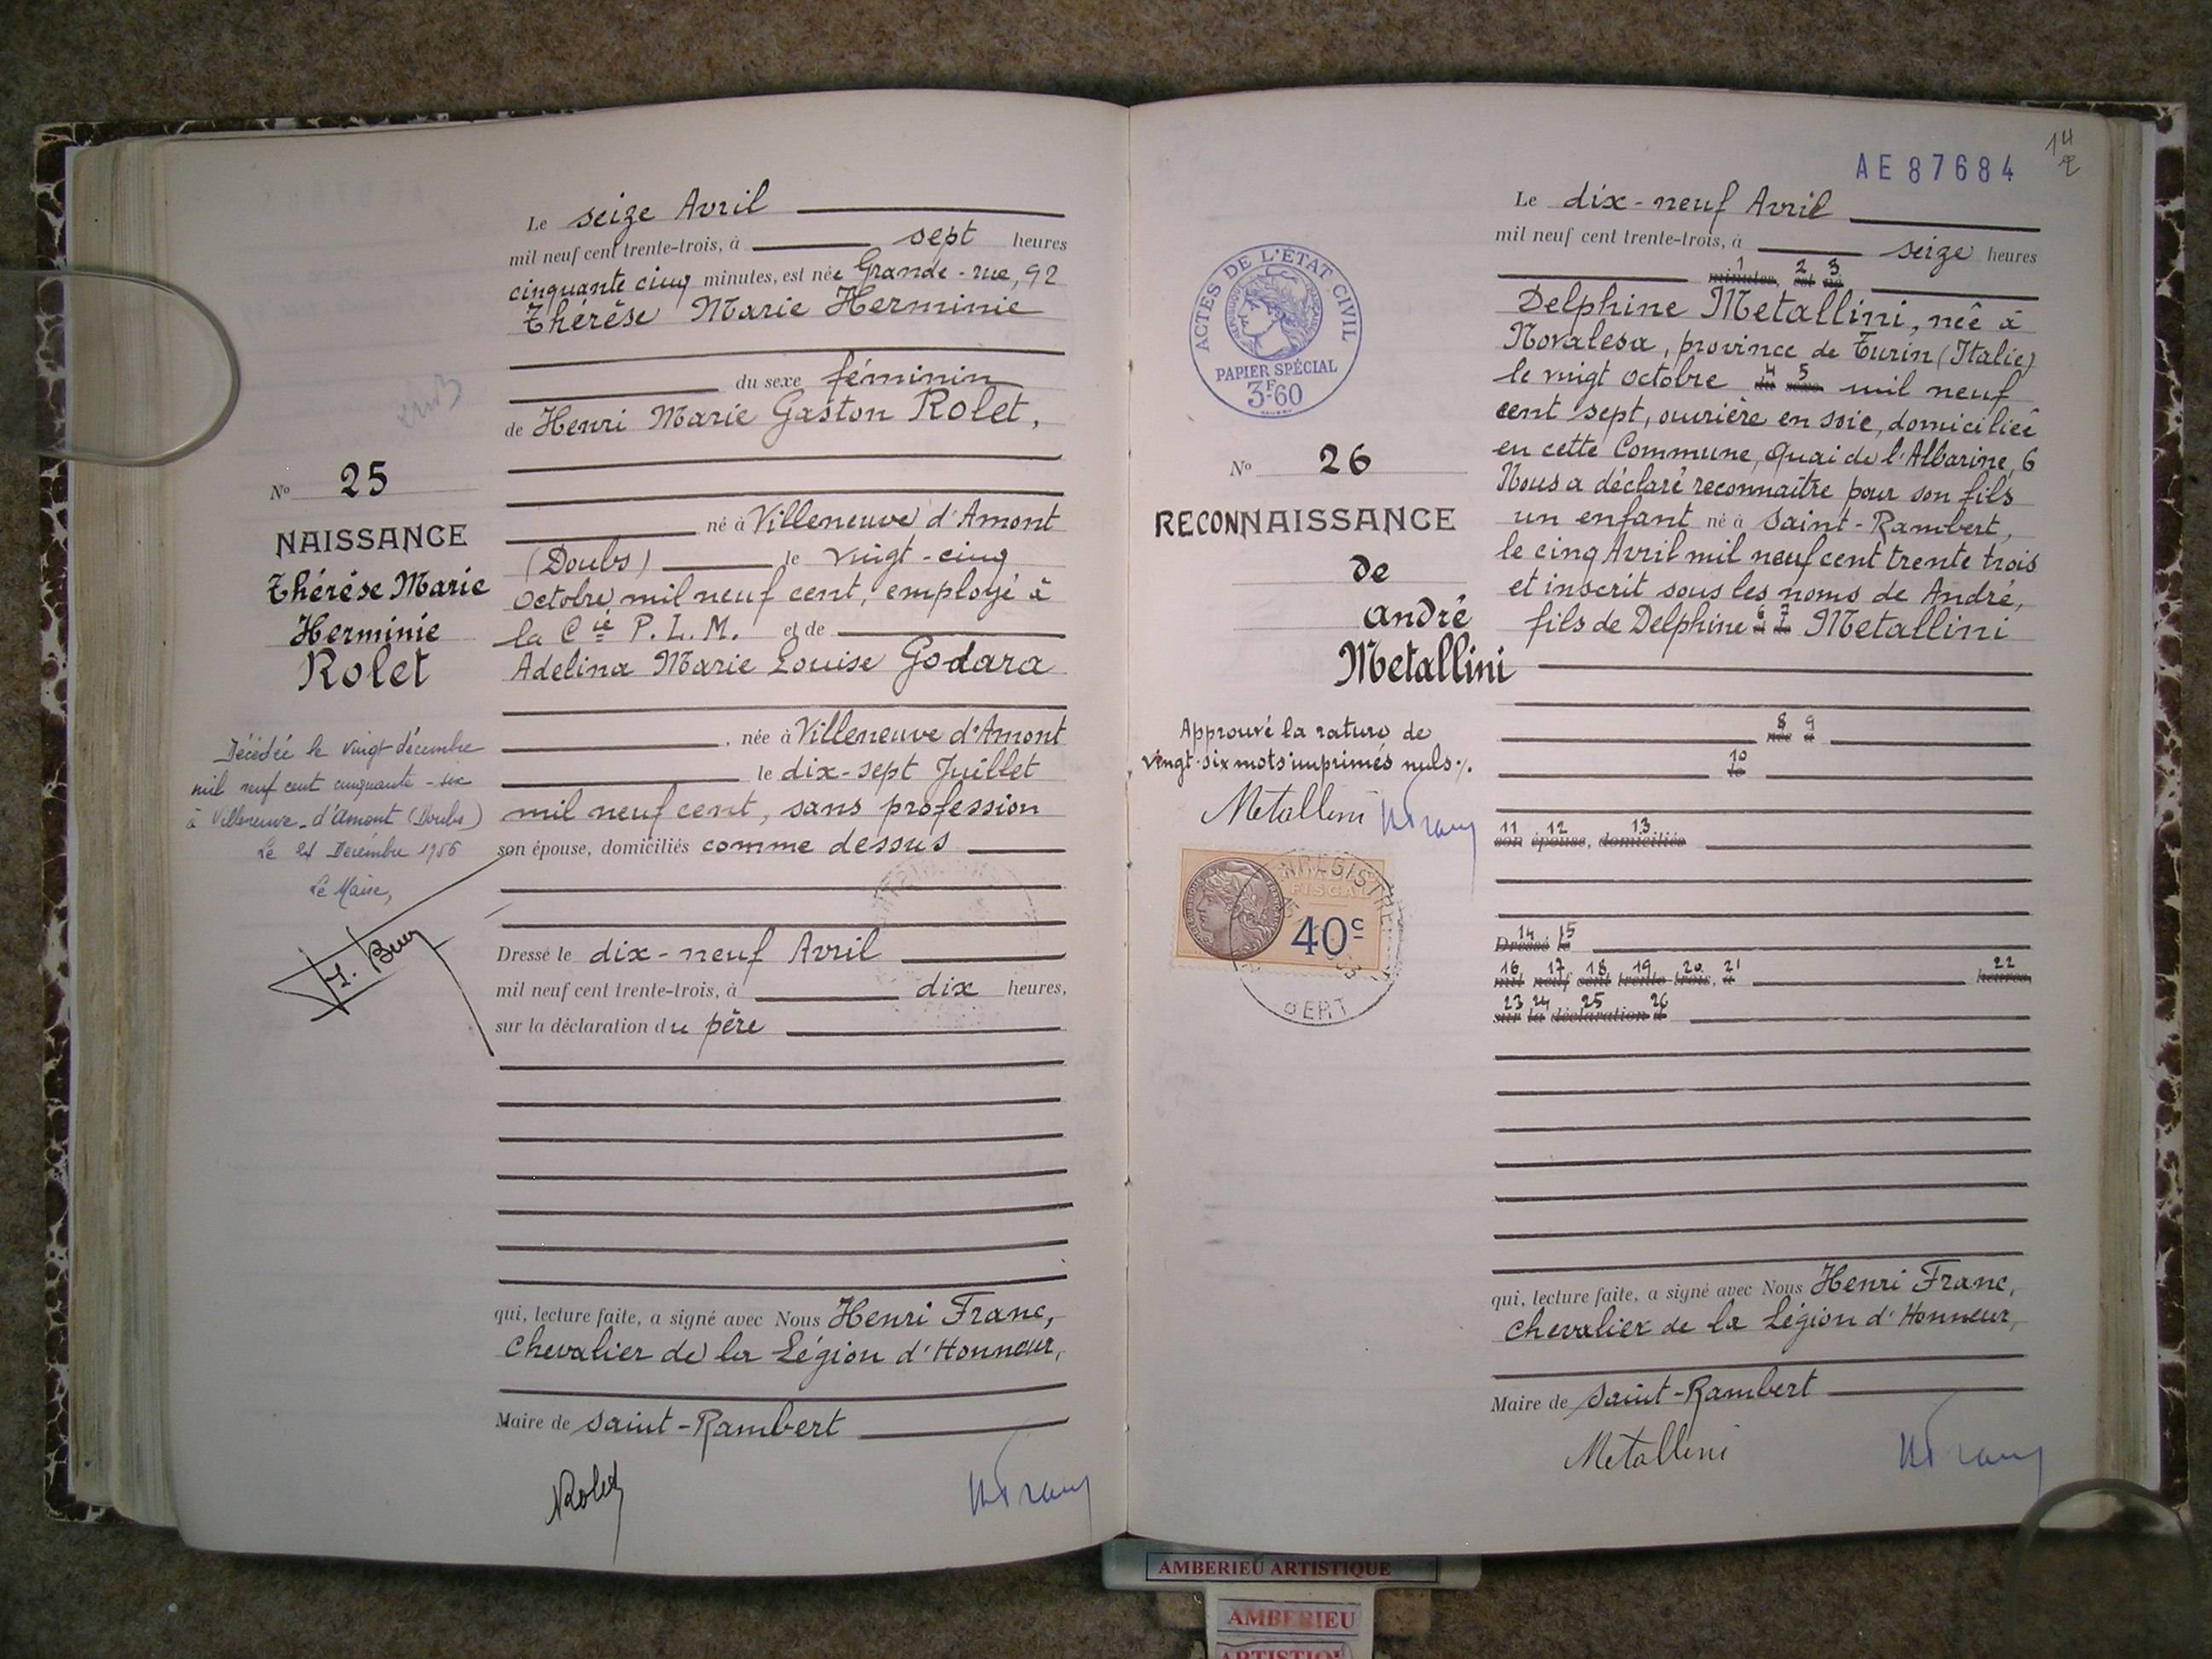 Le seize Avril
mil neuf cent trente-trois, à sept heures
cinquante cinq minutes, est née Grande-rue, 92
Thérèse Marie Herminie
du sexe féminin
de Henri Marie Gaston Rolet,
N° 25
NAISSANCE
Thérèse Marie
Herminie
Rolet
né à Villeneuve d'Amont
(Doubs) le vingt-cinq
octobre mil neuf cent, employé à
la Cie P.L.M. et de
Adelina Marie Louise Godara
, née à Villeneuve d'Amont
le dix-sept Juillet
mil neuf cent, sans profession
son épouse, domiciliés comme dessus
Décédée le vingt décembre
mil neuf cent cinquante-six
à Villeneuve-d'Amont (Doubs)
Le 24 Décembre 1956
Le Maire,
Dressé le dix-neuf Avril
mil neuf cent trente-trois, à dix heures,
sur la déclaration du père
qui, lecture faite, a signé avec Nous Henri Franc,
Chevalier de la Légion d'Honneur,
Maire de Saint-Rambert
Rolet
14
AE87684
Le dix-neuf Avril
mil neuf cent trente-trois, à seize heures
1 2 3
minutes, est né
Delphine Metallini, née à
Novalesa, province de Turin (Italie)
4 5
le vingt octobre du sexe mil neuf
cent sept, ouvrière en soie, domiciliée
en cette Commune, Quai de l'Albarine, 6
Nous a déclaré reconnaître pour son fils
un enfant né à Saint-Rambert,
le cinq Avril mil neuf cent trente trois
et inscrit sous les noms de André,
6 7
fils de Delphine Metallini
ACTES DE L'ÉTAT CIVIL
PAPIER SPÉCIAL
3F60
N° 26
RECONNAISSANCE
de
André
Metallini
Approuvé la rature de
vingt-six mots imprimés nuls.
Metallini
FISCAL
40c
8 9
née à
10
le
11 12 13
son épouse, domiciliés
14 15
Dressé le
16 17 18 19 20 21 22
mil neuf cent trente-trois, à heures,
23 24 25 26
sur la déclaration d
qui, lecture faite, a signé avec Nous Henri Franc,
Chevalier de la Légion d'Honneur,
Maire de Saint-Rambert
Metallini
AMBERIEU ARTISTIQUE
AMBERIEU